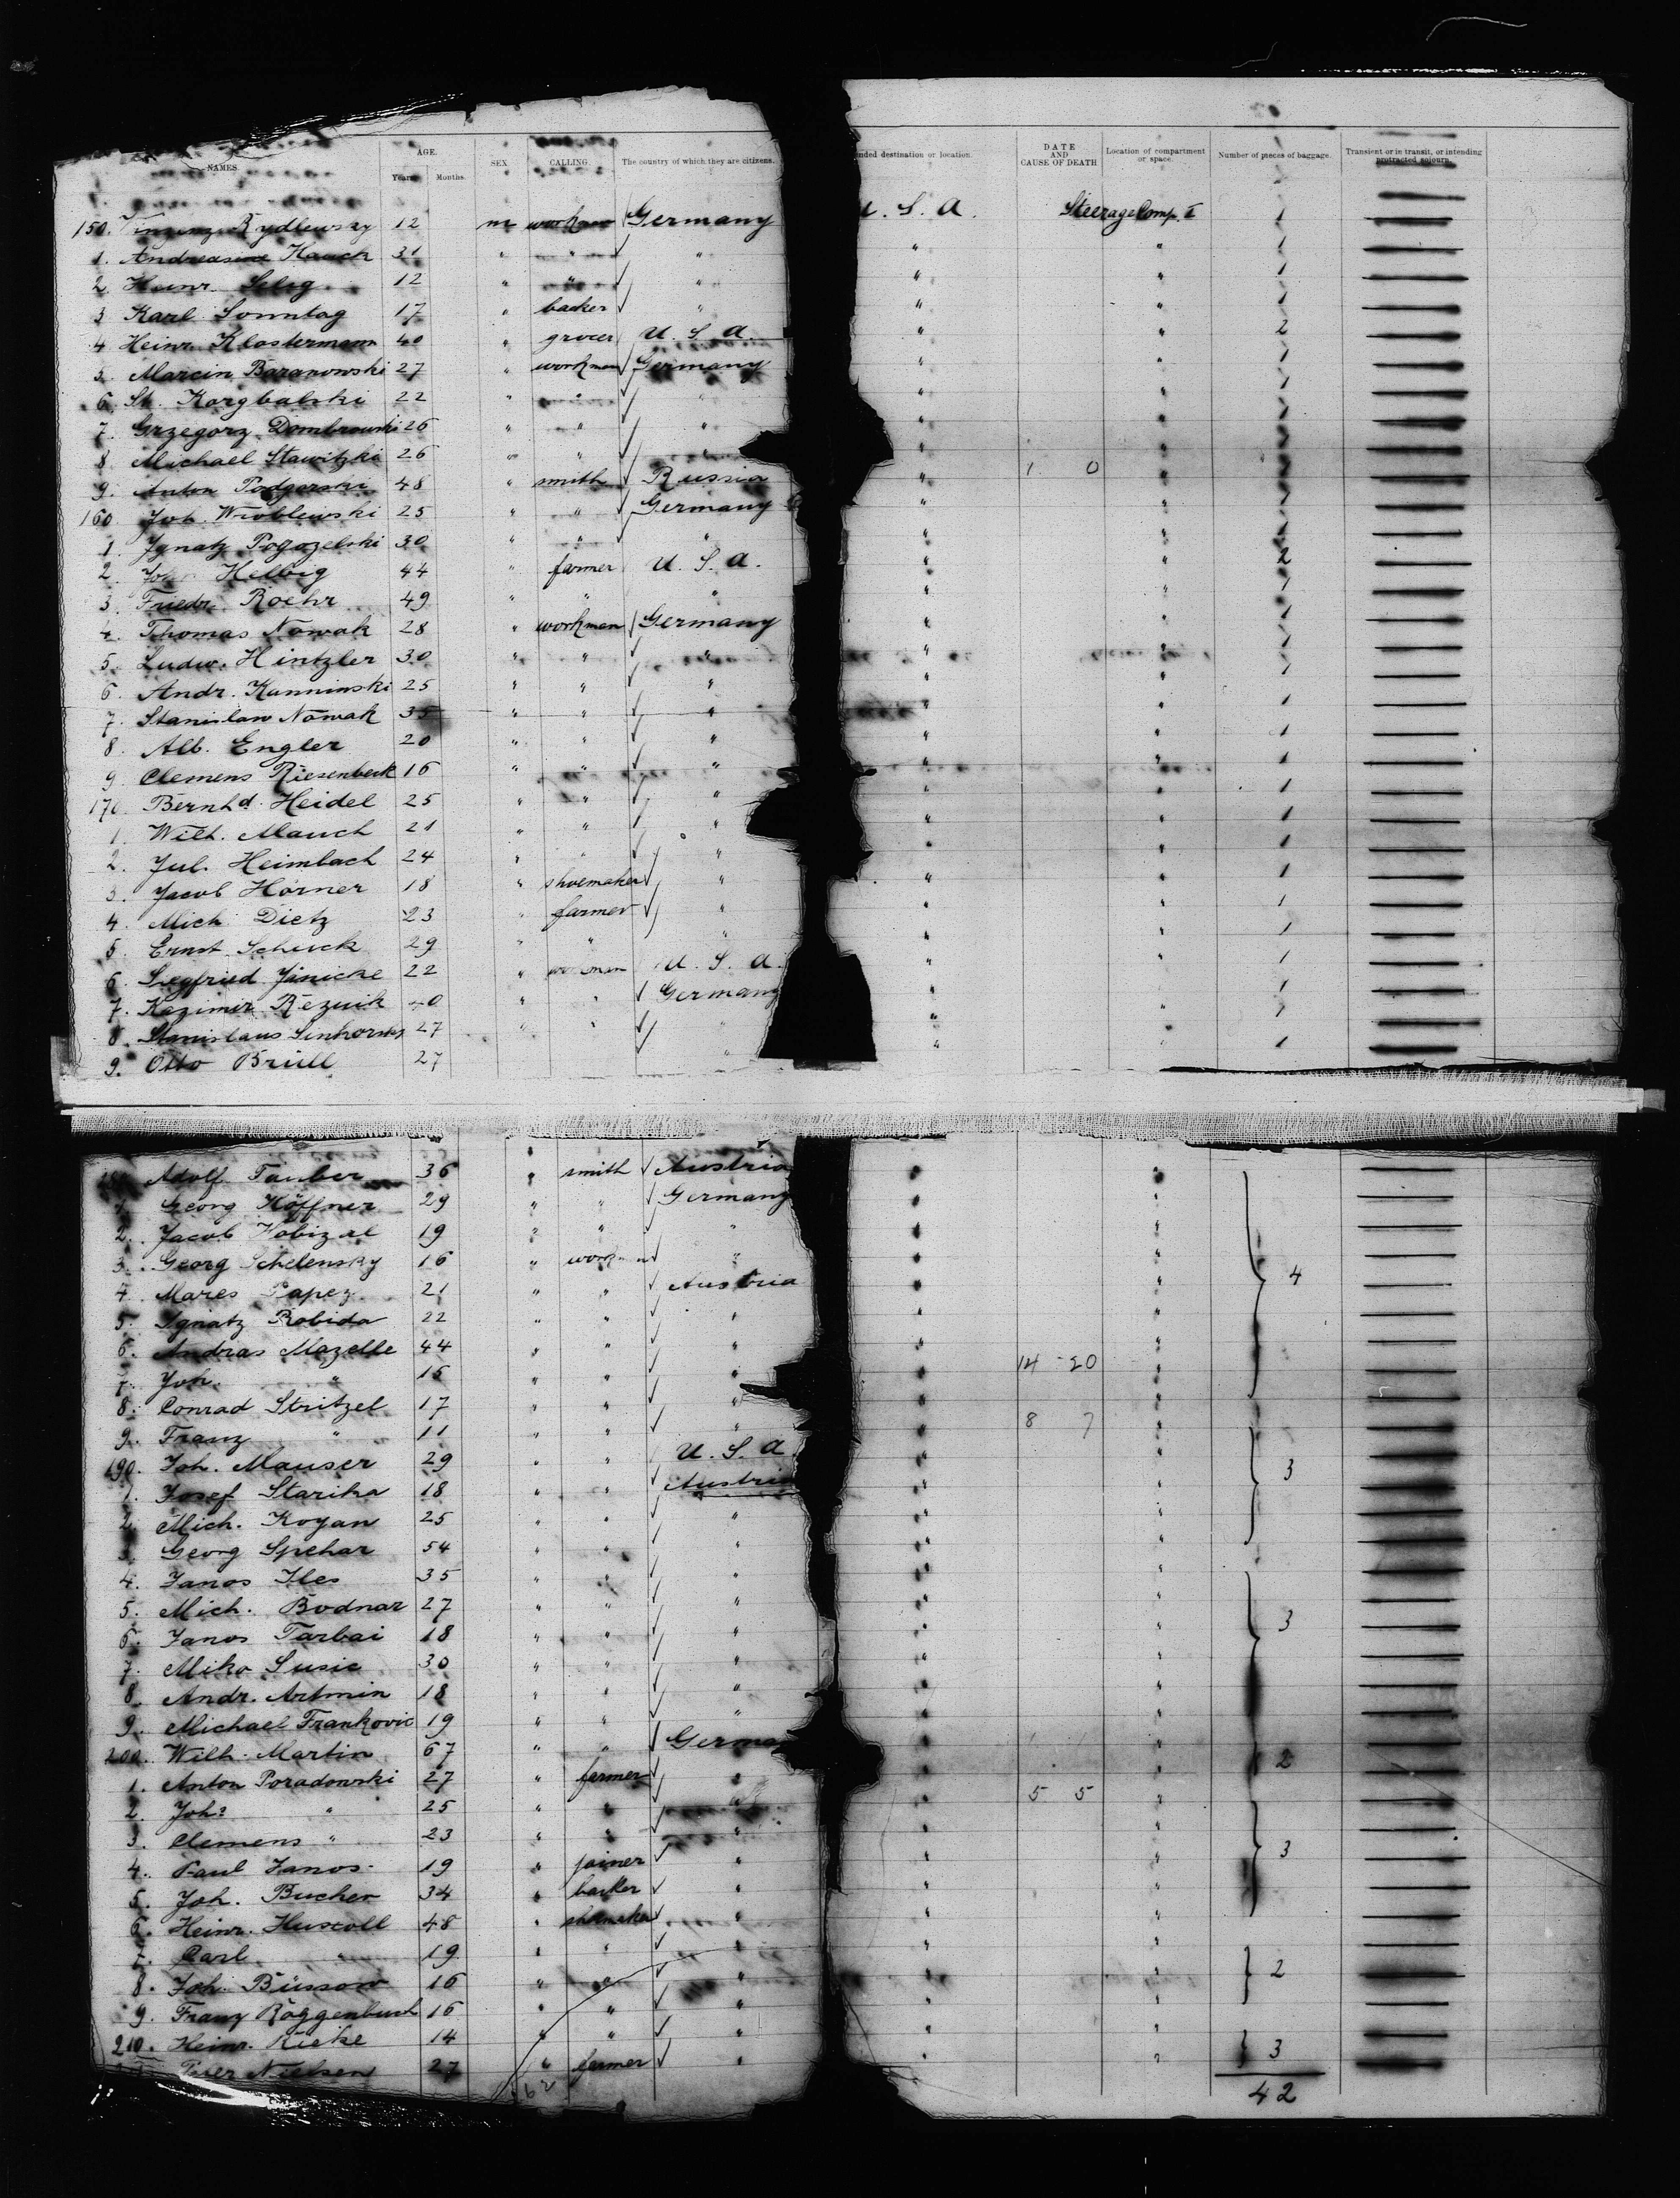 NAMES. AGE. Years. Months. SEX CALLING The country of which they are citizens. nded destination or location. DATE AND CAUSE OF DEATH Location of compartment or space. Number of pieces of baggage. Transient or in transit, or intending protracted sojourn.
150. Vinzenz Rydlewsky 12 m workman √ Germany U. S. A. Steerage Comp. I 1
1. Hauck 31 " " √ " " " 1
2. Heinr. Selig 12 " " √ " " " 1
3 Karl Sonntag 17 " backer √ " " " 1
4 Heinr. Klostermann 40 " grocer U. S. A. " " 2
5. Marcin Baranowski 27 " workman √ Germany " " 1
6. St. Korgbalski 22 " " √ " " " 1
7. Grzegorz Dombrowski 26 " " √ " " " 1
8 Michael Stawitzki 26 " " √ " " " 1 0
9. Anton Podgorski 48 " smith √ Russia " "
160 Joh. Wroblewski 25 " " √ Germany " " 1
1. Ignatz Pogozelski 30 " " √ " " " 1
2. Joh. Helbig 44 " farmer U. S. A. " " 2
3. Friedr. Roehr 49 " " " " " 1
4. Thomas Nowak 28 " workman √ Germany " " 1
5. Ludw. Hintzler 30 " " √ " " " 1
6. Andr. Kanninski 25 " " √ " " " 1
7. Stanislaw Nowak 35 " " √ " " " 1
8. Alb. Engler 20 " " √ " " " 1
9 Clemens Riesenbeck 16 " " √ " " " 1
170 Bernhd. Heidel 25 " " √ " " " 1
1. Wilh. Mauch 21 " " √ " " " 1
2. Jul. Heimbach 24 " " √ " " " 1
3. Jacob Horner 18 " shoemaker √ " " " 1
4. Mich. Dietz 23 " farmer √ " " " 1
5. Ernst Schuck 29 " " " " " 1
6. Siegfried Jänicke 22 " workman U. S. A. " " 1
7. Kazimir Rezuik 40 " " √ Germany " " 1
8. Stanislaus 27 " " √ " " " 1
9. Otto Brüll 27 √ " " " 1
Adolf Tauber 36 " smith √ Austria " "
1. Georg Höffner 29 " " √ Germany " "
2. Jacob 19 " " √ " " "
3. Georg Schelensky 16 " workman √ " " "
4. Mares Papez 21 " " √ Austria " " 4
5. Ignatz Robida 22 " " √ " " "
6. Andras Mazelle 44 " " √ " " "
7. Joh. " 15 " " √ " " 14 - 20 "
8. Conrad Stritzel 17 " " √ " " "
9. Franz " 11 " " √ " " 8 7 "
190. Joh. Mauser 29 " " U. S. A. " "
1. Josef Starika 18 " " √ Austria " " 3
2. Mich. Koyan 25 " " √ " " "
3. Georg Spehar 54 " " √ " " "
4. Janos Iles 35 " " √ " " "
5. Mich. Bodnar 27 " " √ " " "
6. Janos Tarbai 18 " " √ " " " 3
7. Miko Susic 30 " " √ " " "
8. Andr. Artmin 18 " " √ " " "
9. Michael Frankovic 19 " " √ " " "
200. Wilh. Martin 67 " " √ Germa " "
1. Anton Poradowski 27 " farmer √ " " " 2
2. Joh. " 25 " " √ " " 5 5 "
3. Clemens " 23 " " √ " " "
4. Paul Janos 19 " joiner √ " " " 3
5. Joh. Bucher 34 " backer √ " " "
6. Heinr. Huscoll 48 " shoemaker √ " " "
7. Carl " 19 " " √ " " "
8. Joh. Büssow 16 " " √ " " " 2
9. Franz Roggenbuch 16 " " √ " " "
210. Heinr. Rieke 14 " " √ " " "
Peter Nielsen 27 " farmer √ " " " 3
62 42